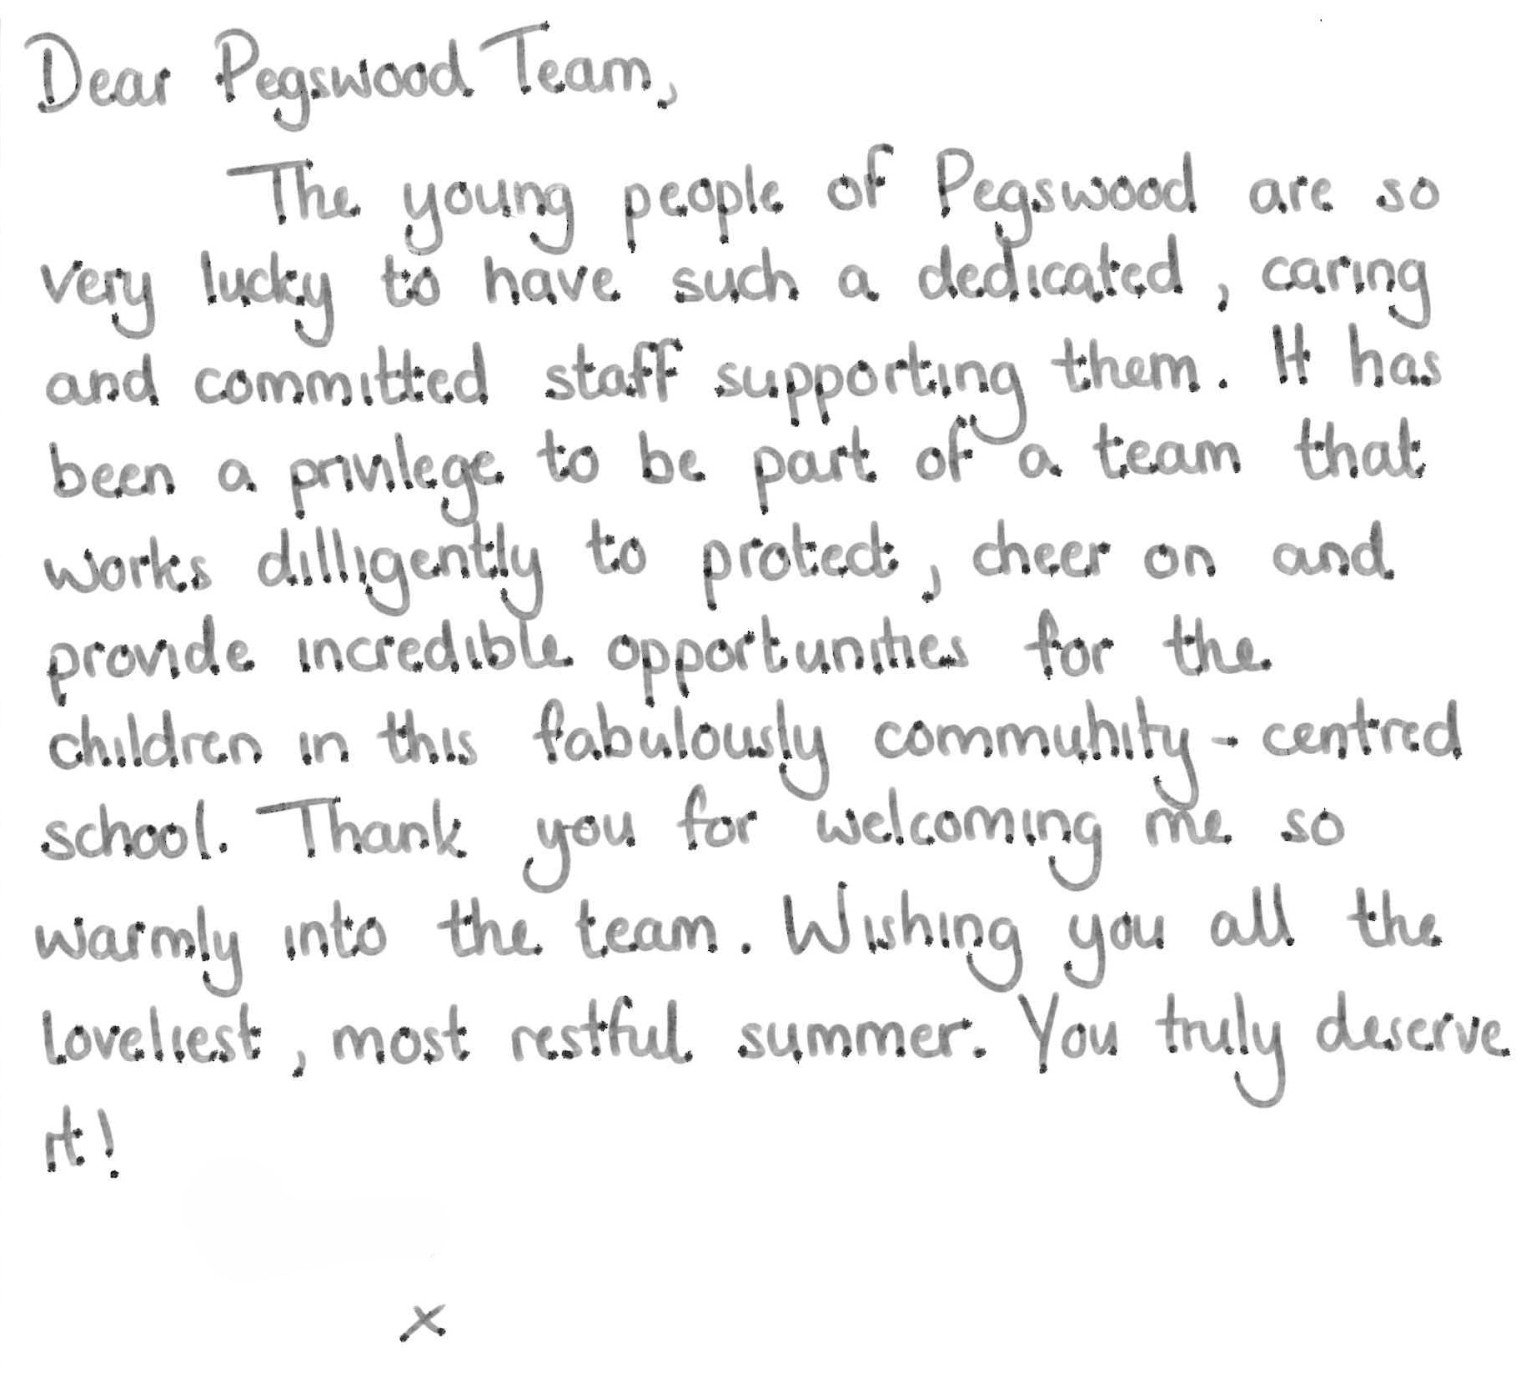 Dear Pegswood Team,
The young people of Pegswood are so
very lucky to have such a dedicated, caring
and committed staff supporting them. It has
been a privilege to be part of a team that
works dilligently to protect, cheer on and
provide incredible opportunities for the
children in this fabulously community-centred
school. Thank you for welcoming me so
warmly into the team. Wishing you all the
loveliest, most restful summer. You truly deserve
it!
x